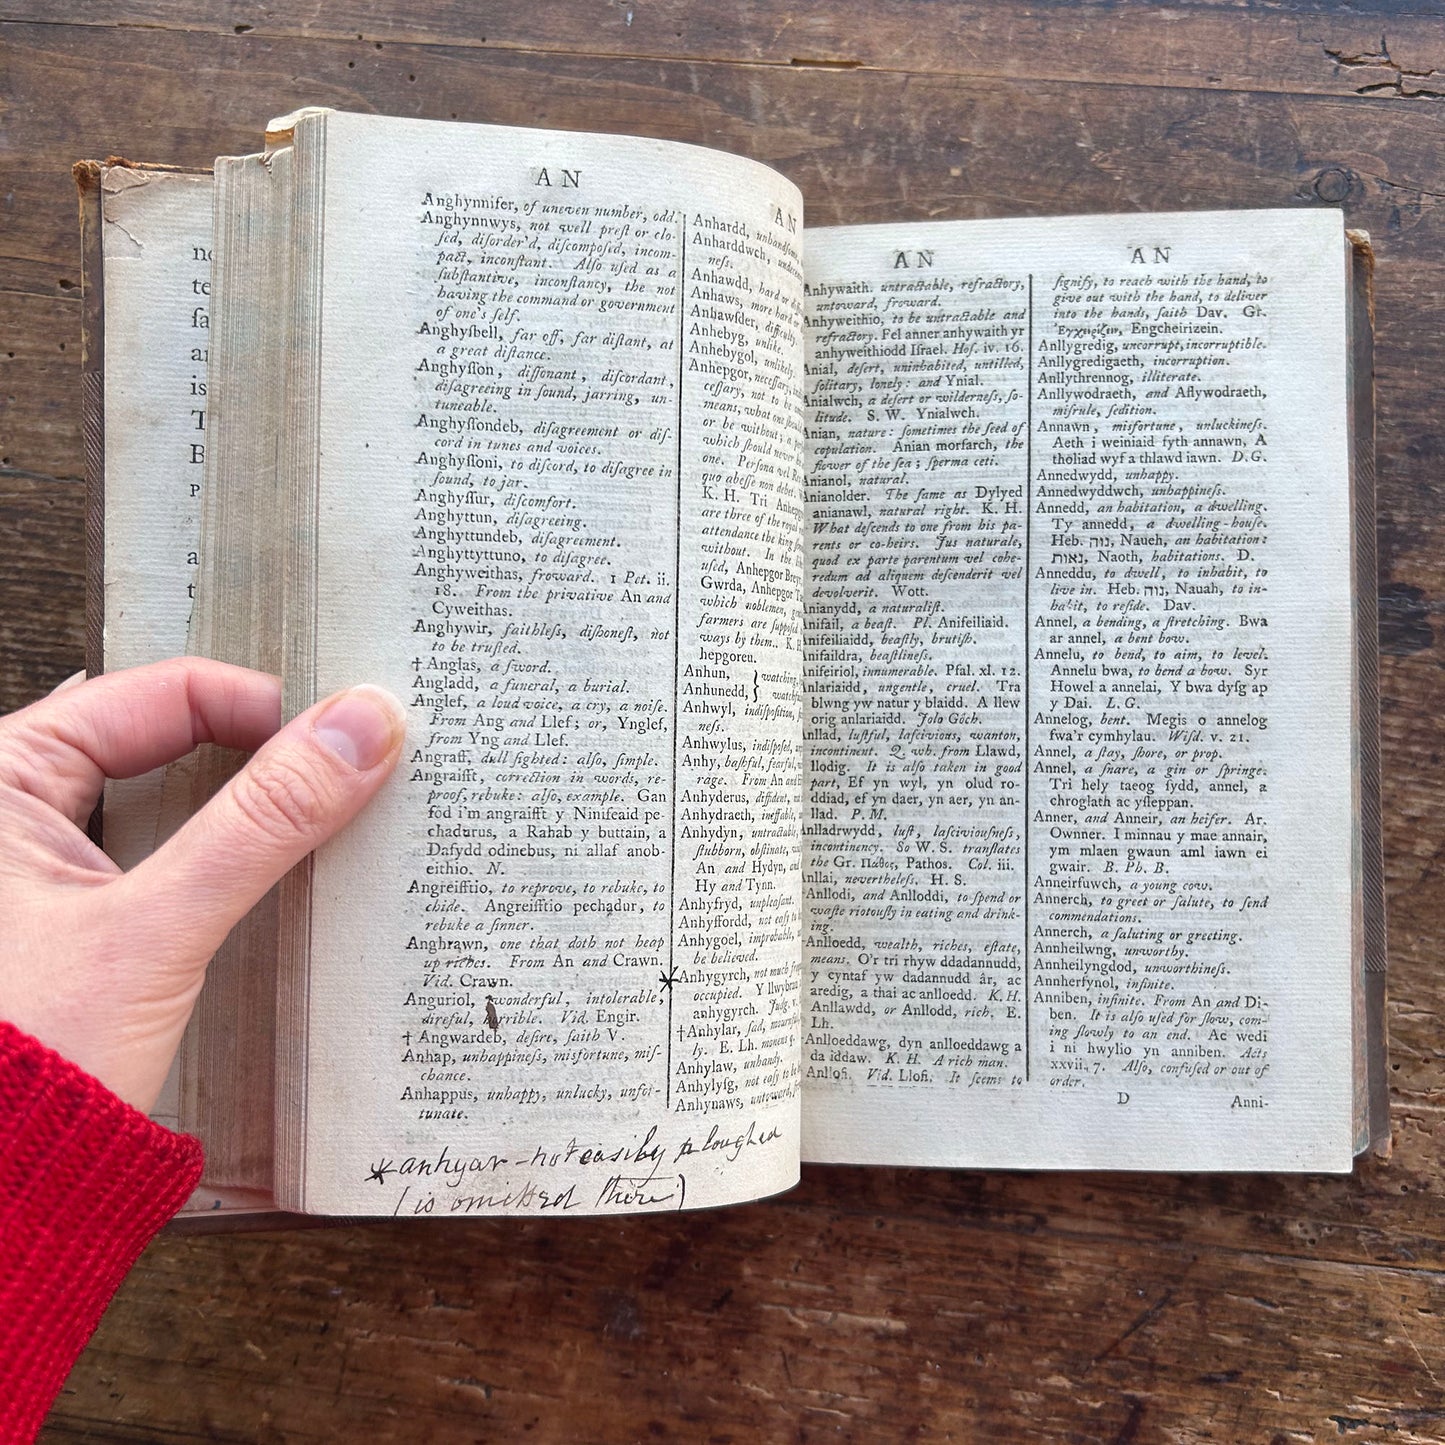 AN
Anghynnifer, of uneven number, odd.
Anghynnwys, not well preſt or clo-
ſed, diſorder'd, diſcompoſed, incom-
pact, inconſtant. Alſo uſed as a
ſubſtantive, inconſtancy, the not
having the command or government
of one's ſelf.
Anghyſbell, far off, far diſtant, at
a great diſtance.
Anghyſſon, diſſonant, diſcordant,
diſagreeing in ſound, jarring, un-
tuneable.
Anghyſſondeb, diſagreement or diſ-
cord in tunes and voices.
Anghyſſoni, to diſcord, to diſagree in
ſound, to jar.
Anghyſſur, diſcomfort.
Anghyttun, diſagreeing.
Anghyttundeb, diſagreement.
Anghyttyttuno, to diſagree.
Anghyweithas, froward. 1 Pet. ii.
18. From the privative An and
Cyweithas.
Anghywir, faithleſs, diſhoneſt, not
to be truſted.
† Anglas, a ſword.
Angladd, a funeral, a burial.
Anglef, a loud voice, a cry, a noiſe.
From Ang and Llef; or, Ynglef,
from Yng and Llef.
Angraff, dull ſighted: alſo, ſimple.
Angraifft, correction in words, re-
proof, rebuke: alſo, example. Gan
fôd i'm angraifft y Ninifeaid pe-
chadurus, a Rahab y buttain, a
Dafydd odinebus, ni allaf anob-
eithio. N.
Angreifftio, to reprove, to rebuke, to
chide. Angreifftio pechadur, to
rebuke a ſinner.
Anghrawn, one that doth not heap
up riches. From An and Crawn.
Vid. Crawn.
Anguriol, wonderful, intolerable,
direful, horrible. Vid. Engir.
† Angwardeb, deſire, ſaith V.
Anhap, unhappineſs, misfortune, miſ-
chance.
Anhappus, unhappy, unlucky, unfor-
tunate.
AN
Anhardd, unhandſome
Anharddwch,
neſs.
Anhawdd, hard or
Anhaws, more hard or
Anhawſder, difficulty.
Anhebyg, unlike.
Anhebygol, unlikely.
Anhepgor, neceſſary,
ceſſary, not to be
means, what one
or be without;
which ſhould never
one. Perſona vel
quo abeſſe non debet.
K. H. Tri
are three of the royal
attendance the king
without. In the
uſed, Anhepgor
Gwrda, Anhepgor
which noblemen,
farmers are ſuppoſed
ways by them. K. H.
hepgoreu.
Anhun,
Anhunedd, } watching,
Anhwyl, indiſpoſition,
neſs.
Anhwylus, indiſpoſed,
Anhy, baſhful, fearful,
rage. From An and
Anhyderus, diffident,
Anhydraeth, ineffable,
Anhydyn, untractable,
ſtubborn, obſtinate,
An and Hydyn,
Hy and Tynn.
Anhyfryd, unpleaſant.
Anhyffordd, not eaſy to
Anhygoel, improbable,
be believed.
* Anhygyrch, not much
occupied. Y llwybrau
anhygyrch. Judg. v.
† Anhylar, ſad,
ly. E. Lh.
Anhylaw, unhandy.
Anhylyſg, not eaſy to be
Anhynaws, untoward,
* anhyar – not easily ploughed
(is omitted there)
AN
Anhywaith. untractable, refractory,
untoward, froward.
Anhyweithio, to be untractable and
refractory. Fel anner anhywaith yr
anhyweithiodd Iſrael. Hoſ. iv. 16.
Anial, deſert, uninhabited, untilled,
ſolitary, lonely: and Ynial.
Anialwch, a deſert or wilderneſs, ſo-
litude. S. W. Ynialwch.
Anian, nature: ſometimes the ſeed of
copulation. Anian morfarch, the
flower of the ſea; ſperma ceti.
Anianol, natural.
Anianolder. The ſame as Dylyed
anianawl, natural right. K. H.
What deſcends to one from his pa-
rents or co-heirs. Jus naturale,
quod ex parte parentum vel cohe-
redum ad aliquem deſcenderit vel
devolverit. Wott.
Anianydd, a naturaliſt.
Anifail, a beaſt. Pl. Anifeiliaid.
Anifeiliaidd, beaſtly, brutiſh.
Anifaildra, beaſtlineſs.
Anifeiriol, innumerable. Pſal. xl. 12.
Anlariaidd, ungentle, cruel. 'Tra
blwng yw natur y blaidd. A llew
orig anlariaidd. Jolo Gôch.
Anllad, luſtful, laſcivious, wanton,
incontinent. Q. wh. from Llawd,
llodig. It is alſo taken in good
part, Ef yn wyl, yn olud ro-
ddiad, ef yn daer, yn aer, yn an-
llad. P. M.
Anlladrwydd, luſt, laſciviouſneſs,
incontinency. So W. S. tranſlates
the Gr. Πάθος, Pathos. Col. iii.
Anllai, nevertheleſs. H. S.
Anllodi, and Anlloddi, to ſpend or
waſte riotouſly in eating and drink-
ing.
Anlloedd, wealth, riches, eſtate,
means. O'r tri rhyw ddadannudd,
y cyntaf yw dadannudd âr, ac
aredig, a thai ac anlloedd. K. H.
Anllawdd, or Anllodd, rich. E.
Lh.
Anlloeddawg, dyn anlloeddawg a
da iddaw. K. H. A rich man.
Anllofi. Vid. Llofi. It ſeems to
AN
ſignify, to reach with the hand, to
give out with the hand, to deliver
into the hands, ſaith Dav. Gr.
Ἐγχειρίζειν, Engcheirizein.
Anllygredig, uncorrupt, incorruptible.
Anllygredigaeth, incorruption.
Anllythrennog, illiterate.
Anllywodraeth, and Aflywodraeth,
miſrule, ſedition.
Annawn, misfortune, unluckineſs.
Aeth i weiniaid fyth annawn, A
tholiad wyf a thlawd iawn. D.G.
Annedwydd, unhappy.
Annedwyddwch, unhappineſs.
Annedd, an habitation, a dwelling.
Ty annedd, a dwelling-houſe.
Heb. נוה, Naueh, an habitation:
נאות, Naoth, habitations. D.
Anneddu, to dwell, to inhabit, to
live in. Heb. נוה, Nauah, to in-
habit, to reſide. Dav.
Annel, a bending, a ſtretching. Bwa
ar annel, a bent bow.
Annelu, to bend, to aim, to level.
Annelu bwa, to bend a bow. Syr
Howel a annelai, Y bwa dyſg ap
y Dai. L. G.
Annelog, bent. Megis o annelog
fwa'r cymhylau. Wiſd. v. 21.
Annel, a ſtay, ſhore, or prop.
Annel, a ſnare, a gin or ſpringe.
Tri hely taeog fydd, annel, a
chroglath ac yſleppan.
Anner, and Anneir, an heifer. Ar.
Ownner. I minnau y mae annair,
ym mlaen gwaun aml iawn ei
gwair. B. Ph. B.
Anneirfuwch, a young cow.
Annerch, to greet or ſalute, to ſend
commendations.
Annerch, a ſaluting or greeting.
Annheilwng, unworthy.
Annheilyngdod, unworthineſs.
Annherfynol, infinite.
Anniben, infinite. From An and Di-
ben. It is alſo uſed for ſlow, com-
ing ſlowly to an end. Ac wedi
i ni hwylio yn anniben. Acts
xxvii. 7. Alſo, confuſed or out of
order.
D
Anni-